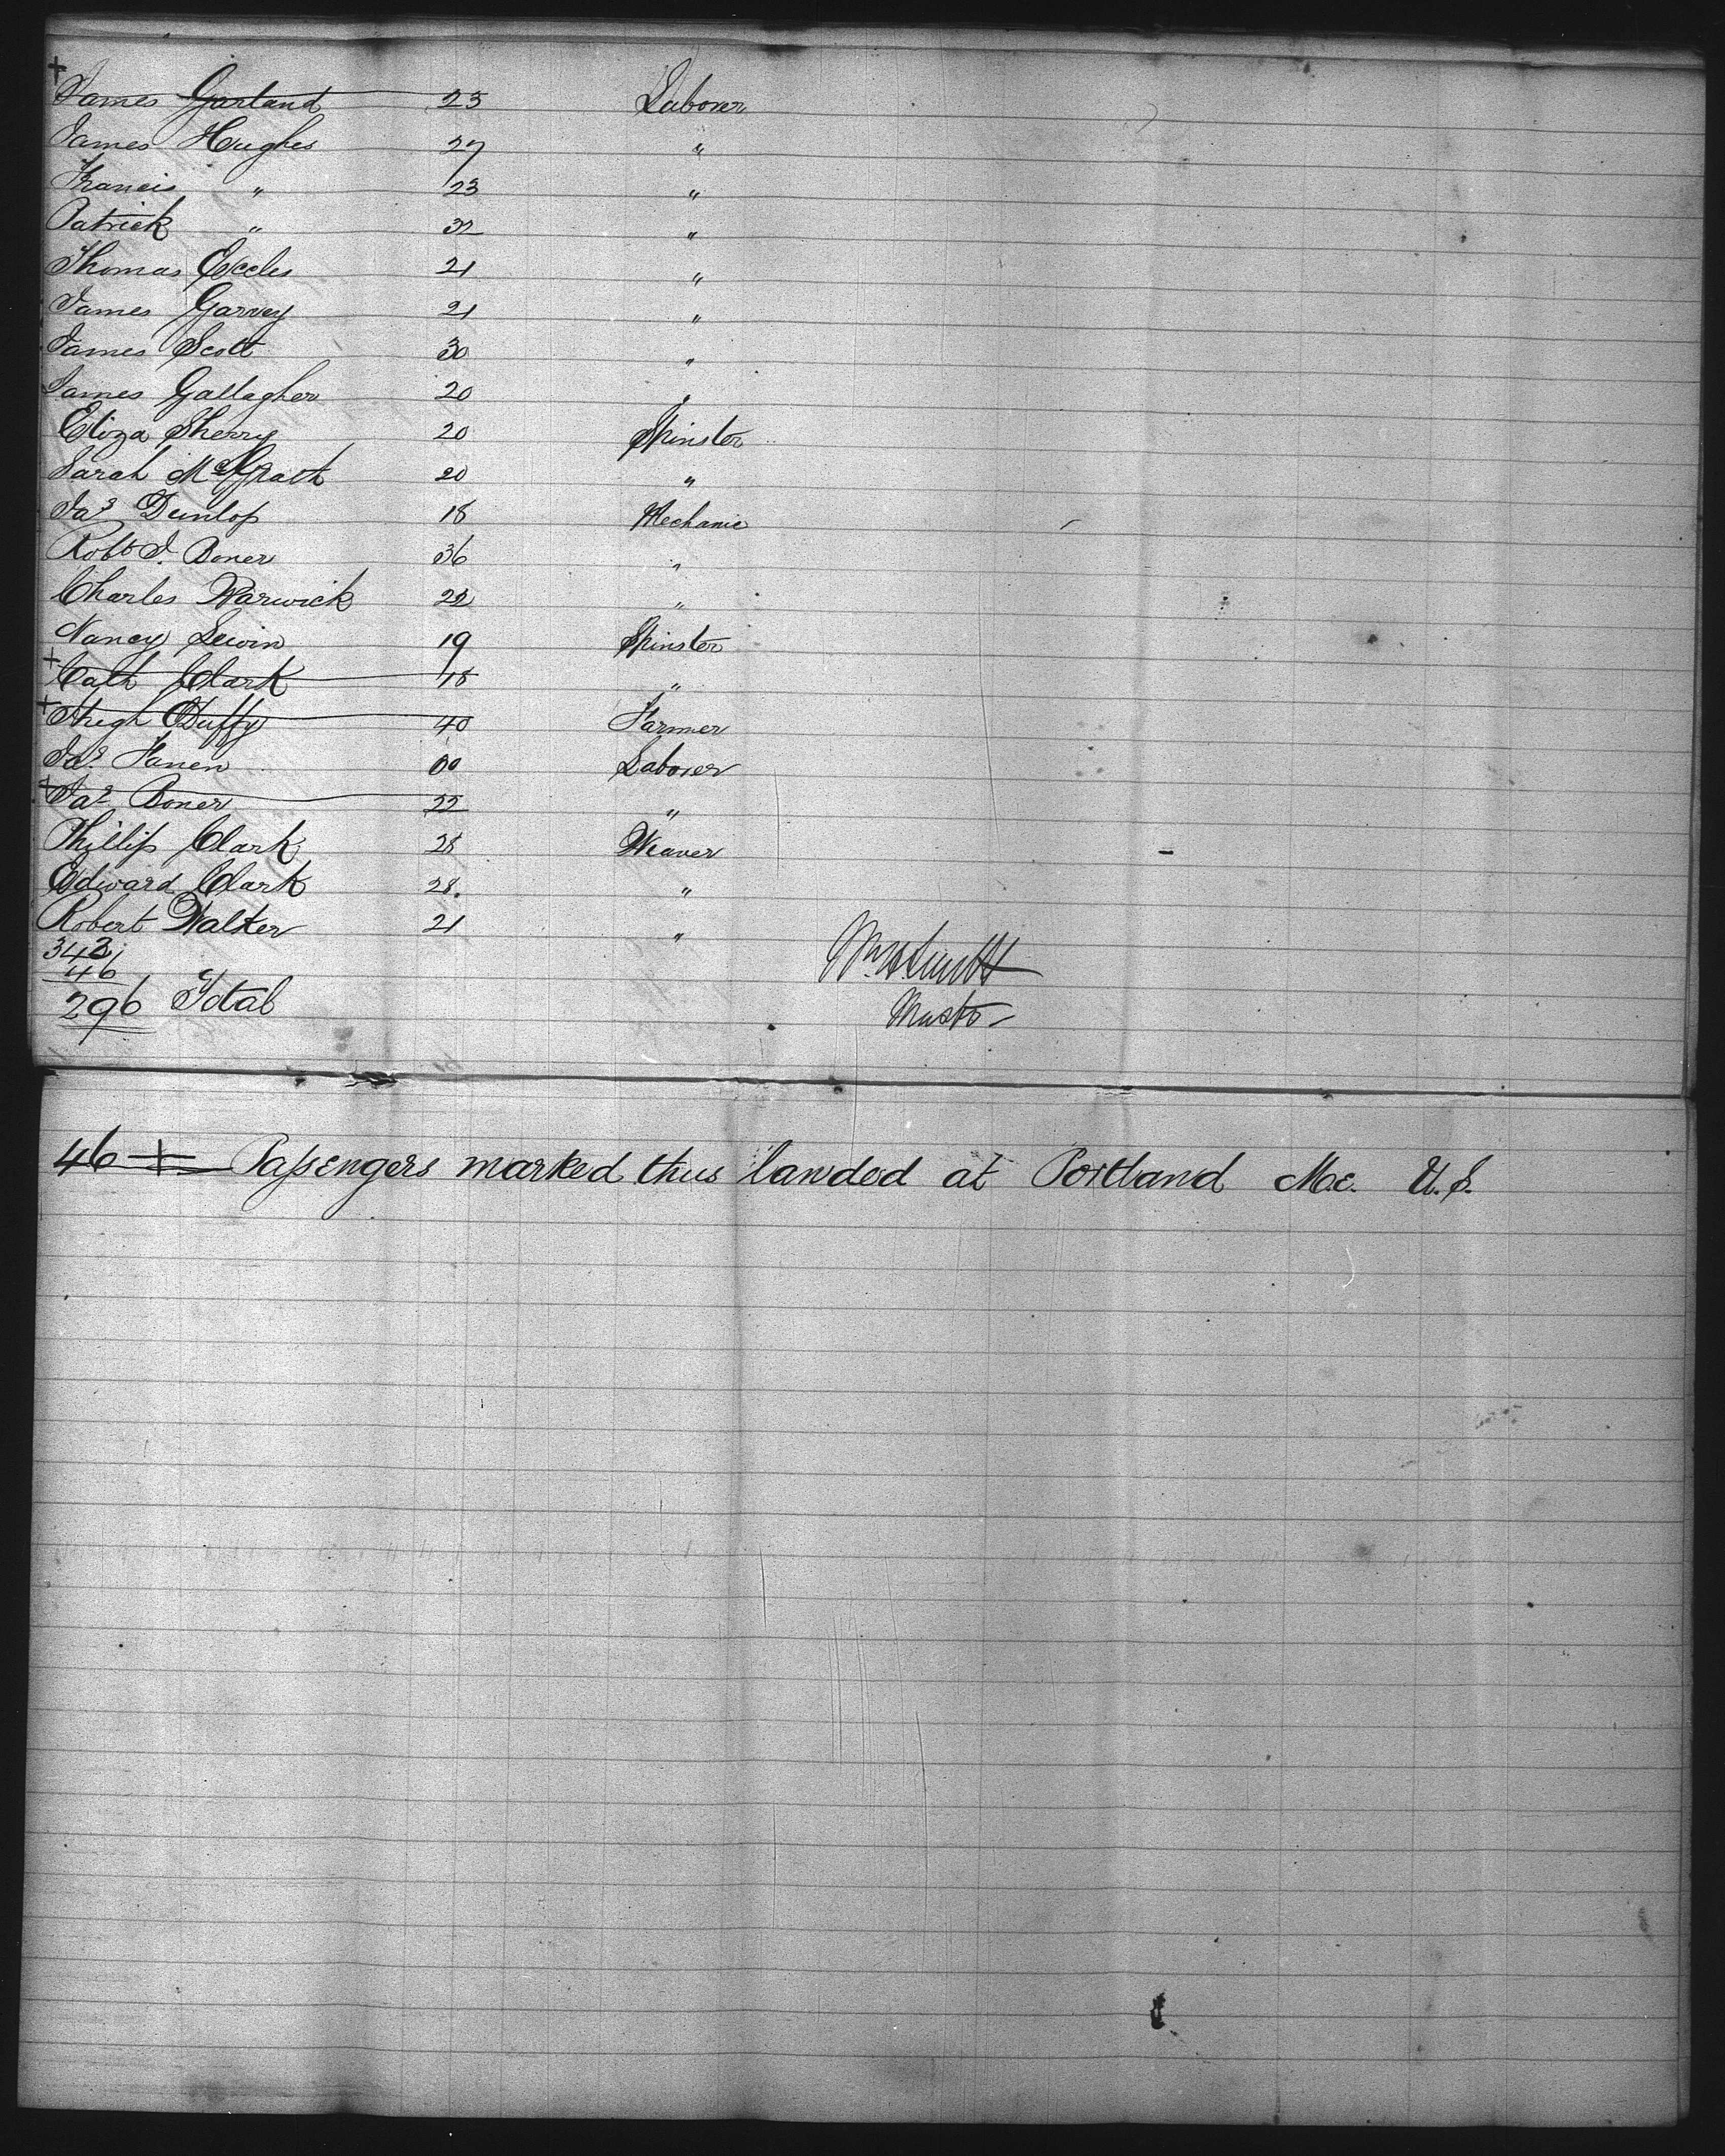 + James Garland 23 Laborer
James Hughes 27 "
Francis " 23 "
Patrick " 32 "
Thomas Eccles 21 "
James Garvey 21 "
James Scott 30 "
James Gallagher 20 "
Eliza Sherry 20 Spinster
Sarah McGrath 20 "
Jas Dunlop 18 Mechanic
Robt J. Boner 36 "
Charles Warwick 22 "
Nancy Lewin 19 Spinster
+ Cath Clark 18 "
+ Hugh Duffy 40 Farmer
Jas. Fanen Laborer
+ Jas Boner 22 "
Phillip Clark 28 Weaver
Edward Clark 28. "
Robert Walker 21 "
342
46
296 Total
Master
46 + Passengers marked thus landed at Portland Me. U.S.